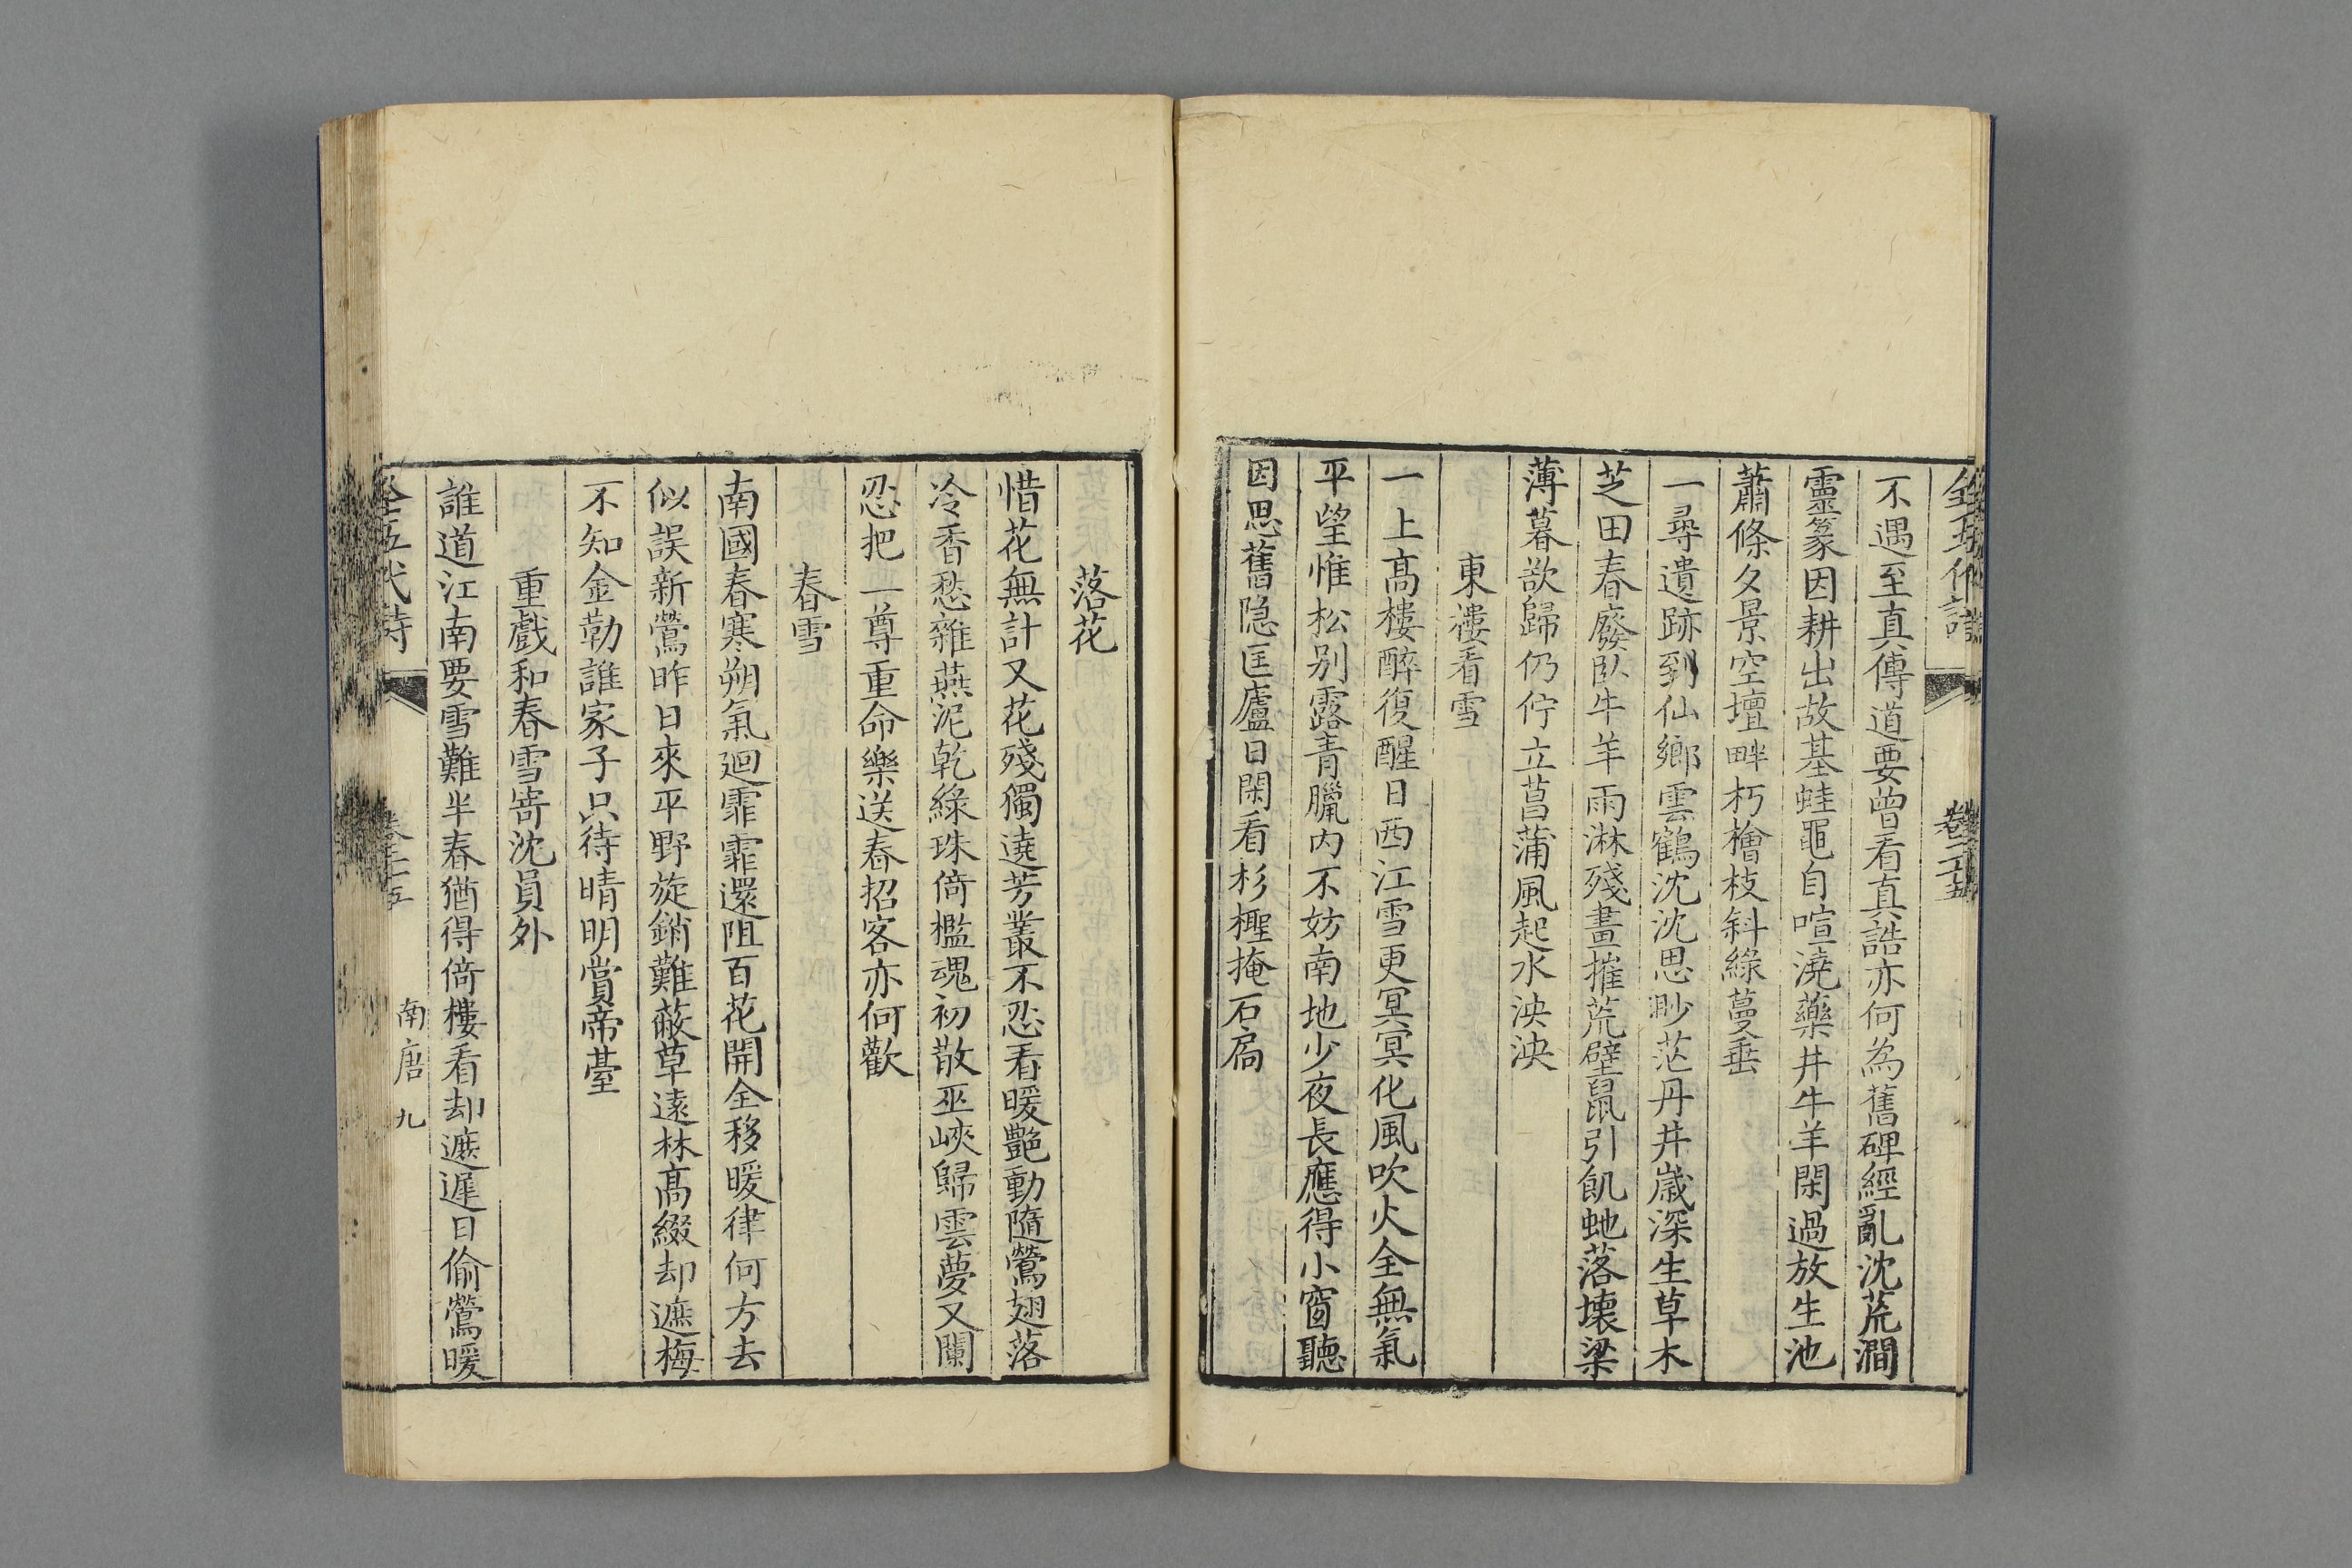 全五代詩
卷二十五
不遇至真傳道要曾看真誥亦何為舊碑經亂沈荒澗
靈篆因耕出故基蛙黽自喧澆藥井牛羊閑過放生池
蕭條夕景空壇畔朽檜枝斜綠蔓垂
一尋遺跡到仙鄉雲鶴沈沈思眇茫丹井歲深生草木
芝田春廢臥牛羊雨淋殘畫摧荒壁鼠引飢虵落壞梁
薄暮欲歸仍佇立菖蒲風起水泱泱
東樓看雪
一上高樓醉復醒日西江雪更冥冥化風吹火全無氣
平望惟松别露青臘内不妨南地少夜長應得小窗聽
因思舊隐匡廬日閑看杉檉掩石扃
落花
惜花無計又花殘獨遶芳叢不忍看暖艷動隨鶯翅落
冷香愁雜燕泥乾綠珠倚檻魂初散巫峽歸雲夢又闌
忍把一尊重命樂送春招客亦何歡
春雪
南國春寒朔氣迴霏霏還阻百花開全移暖律何方去
似誤新鶯昨日來平野旋銷難蔽草遠林高綴却遮梅
不知金勒誰家子只待晴明賞帝臺
重戲和春雪寄沈員外
誰道江南要雪難半春猶得倚樓看却遮遲日偷鶯暖
全五代詩
卷二十五
南唐
九